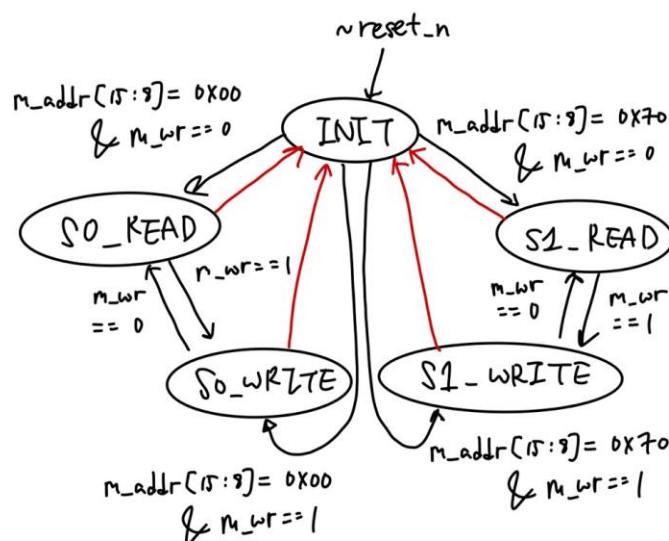 ~reset_n
m_addr[15:8] = 0X00
& m_wr==0
INIT
m_addr[15:8] = 0X70
& m_wr==0
S0_READ
S1_READ
m_wr==1
m_wr
==0
m_wr
==0
m_wr
==1
S0_WRITE
S1_WRITE
m_addr[15:8] = 0X00
& m_wr==1
m_addr[15:8] = 0X70
& m_wr==1